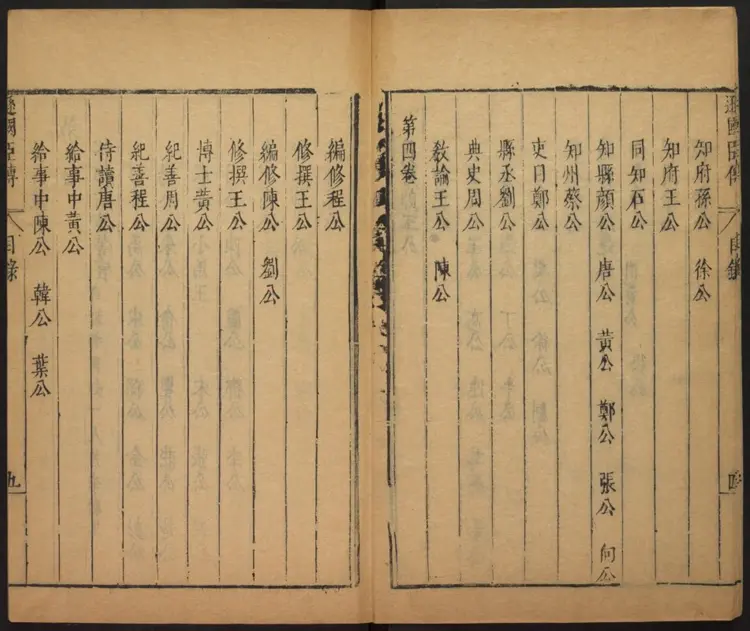 遜國臣傳 目錄
知府孫公 徐公
知府王公
同知石公
知縣顏公 唐公 黃公 鄭公 張公 向公
知州蔡公
吏目鄭公
縣丞劉公
典史周公
教諭王公 陳公
第四卷
編修程公
修撰王公
編修陳公 劉公
修撰王公
博士黃公
紀善周公
紀善程公
侍讀唐公
給事中黃公
給事中陳公 韓公 葉公
遜國臣傳 目錄 九